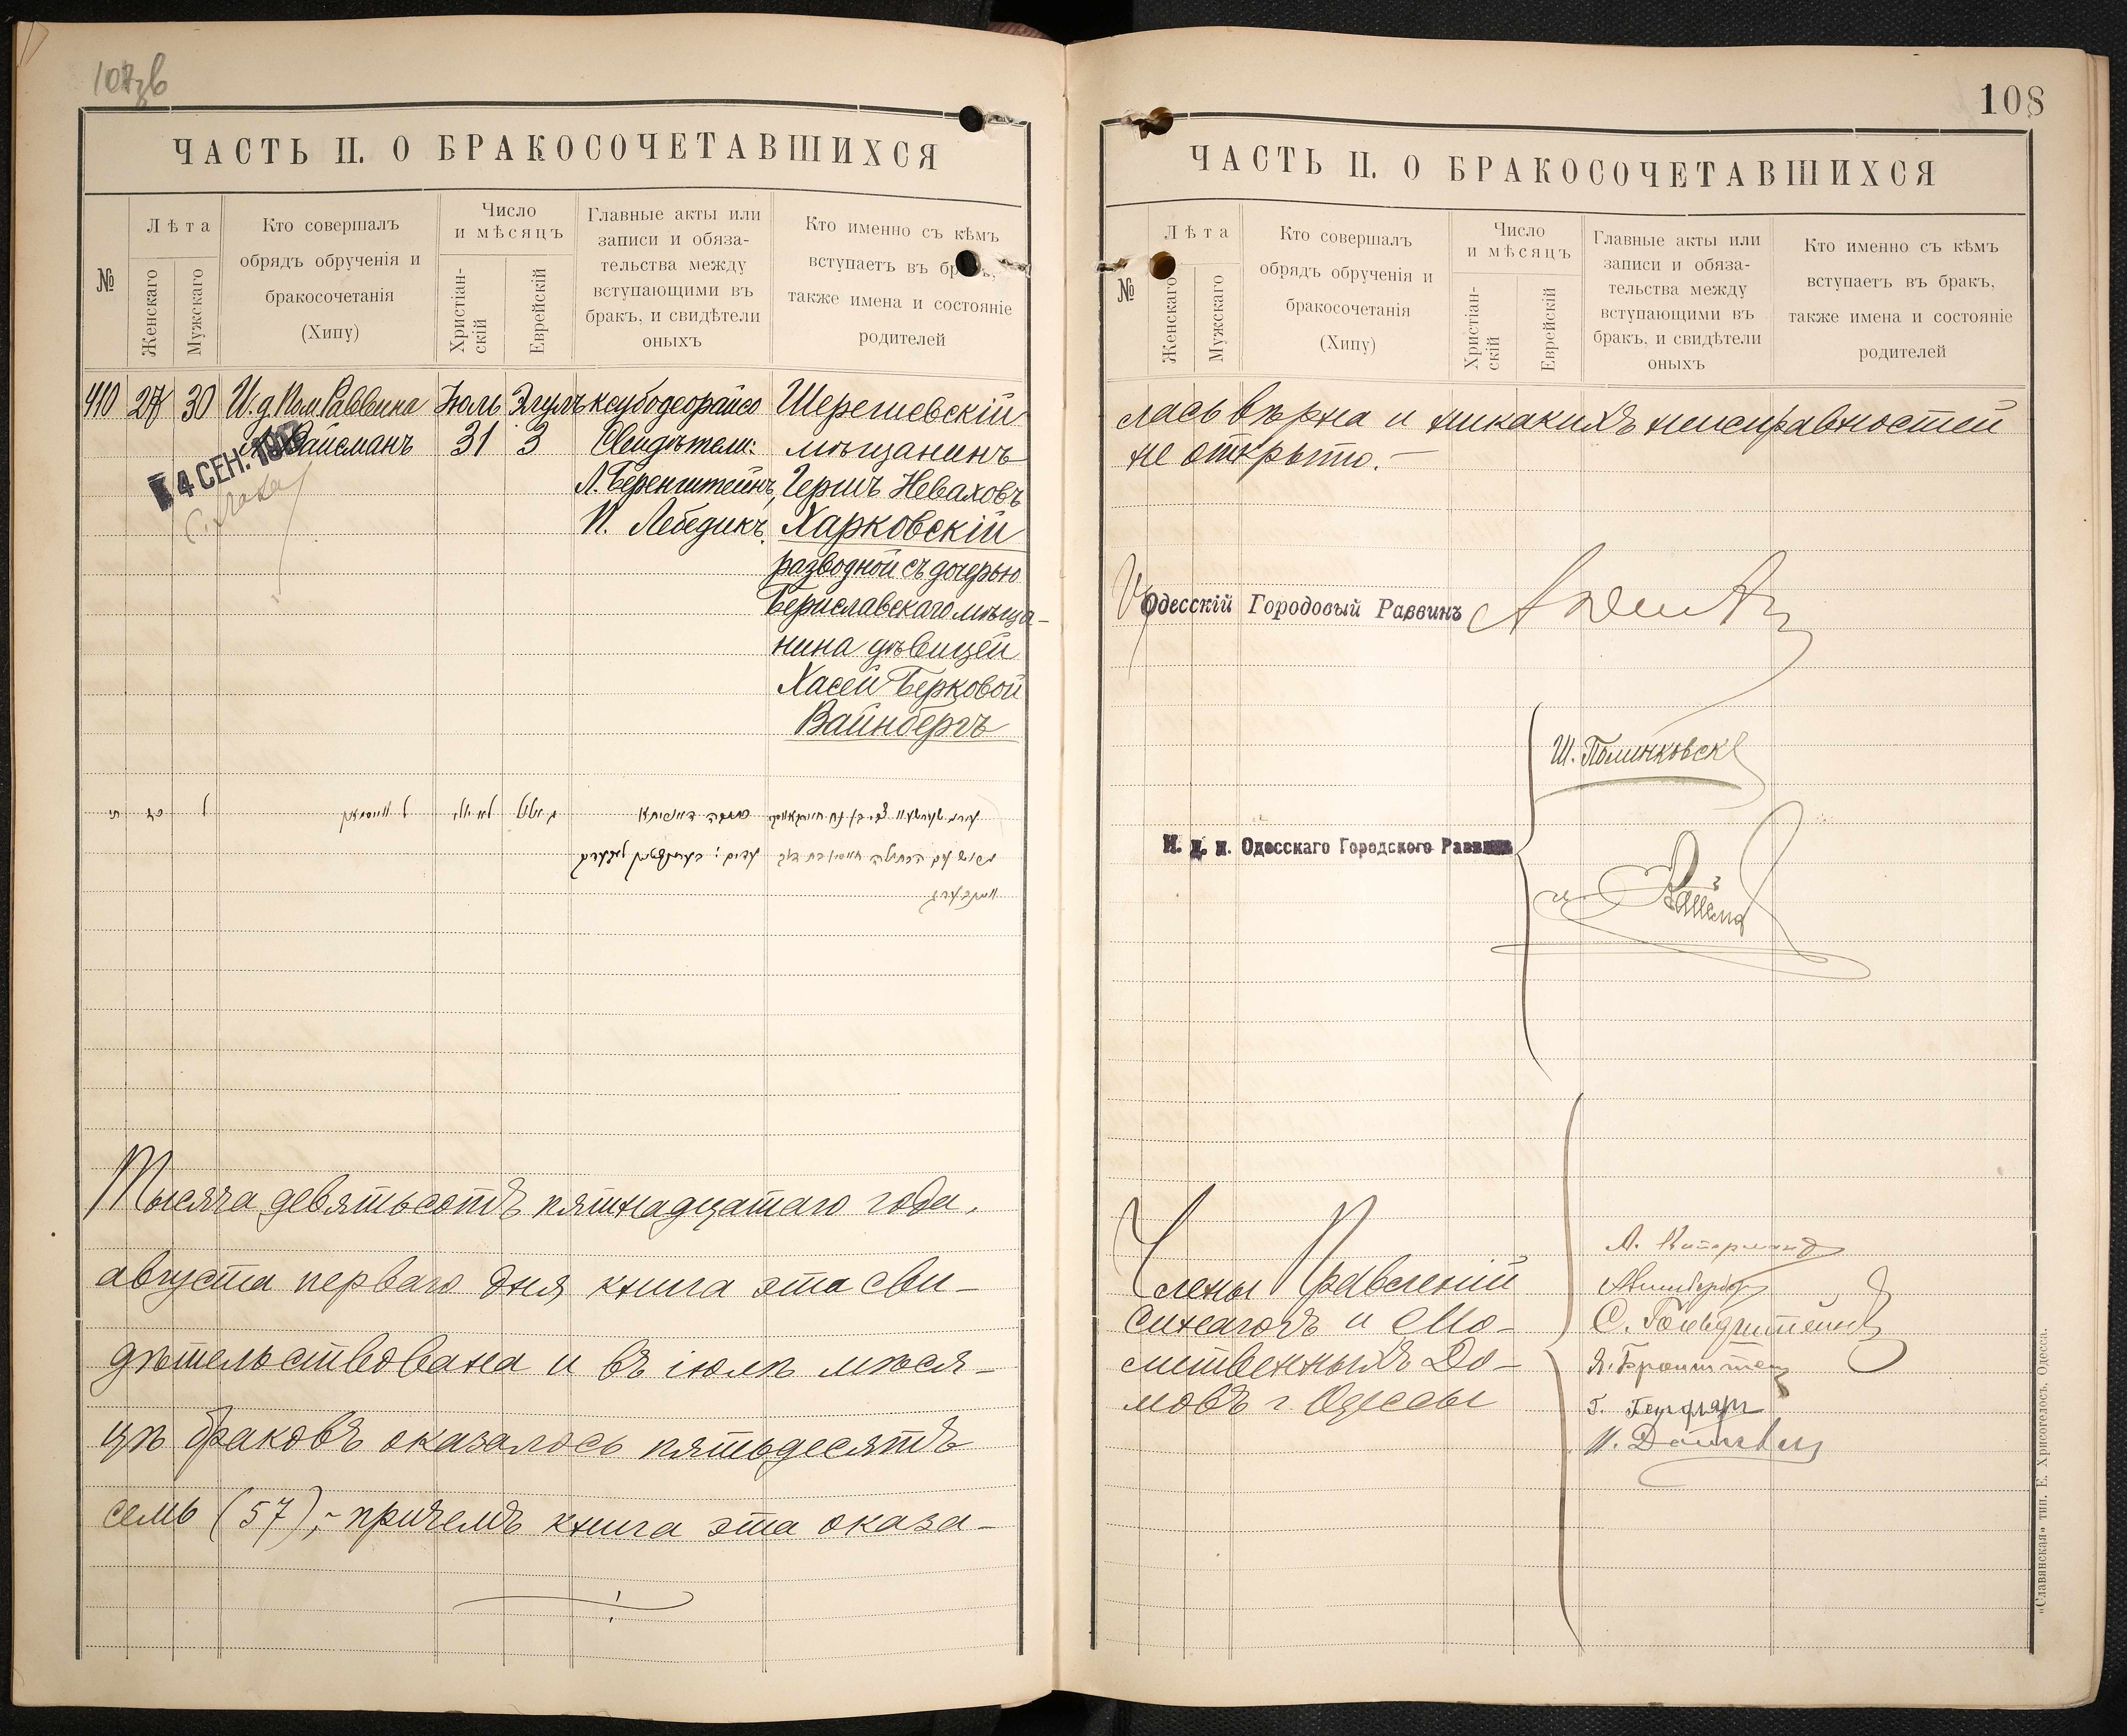 107об
ЧАСТЬ II. О БРАКОСОЧЕТАВШИХСЯ
№
Лѣта
Женскаго
Мужскаго
Кто совершалъ
обрядъ обрученія и
бракосочетанія
(Хипу)
Число
и мѣсяцъ
Христіан-
скій
Еврейскій
Главные акты или
записи и обяза-
тельства между
вступающими въ
бракъ, и свидѣтели
оныхъ
Кто именно съ кѣмъ
вступаетъ въ бракъ,
также имена и состояніе
родителей
410 27 30 И.д. Пом. Раввина Іюль Элулъ ксубодеорайсо Шерешевскій
Вайсманъ 31 3 Свидѣтели: мѣщанинъ
4 СЕН.
Л. Беренштейнъ, Гершъ Неваховъ
И. Лебедикъ. Харковскій
разводной съ дочерью
Бериславскаго мѣща-
нина дѣвицей
Хасей Берковой
Вайнбергъ
Тысяча девятьсотъ пятнадцатаго года,
августа перваго дня книга эта сви-
дѣтельствована и въ іюлѣ мѣся-
цѣ браковъ оказалось пятьдесятъ
семь (57),- причемъ книга эта оказа-
108
ЧАСТЬ II. О БРАКОСОЧЕТАВШИХСЯ
№
Лѣта
Женскаго
Мужскаго
Кто совершалъ
обрядъ обрученія и
бракосочетанія
(Хипу)
Число
и мѣсяцъ
Христіан-
скій
Еврейскій
Главные акты или
записи и обяза-
тельства между
вступающими въ
бракъ, и свидѣтели
оныхъ
Кто именно съ кѣмъ
вступаетъ въ бракъ,
также имена и состояніе
родителей
лась вѣрна и никакихъ неисправностей
не открыто.-
Одесскій Городовый Раввинъ
Ш. Полинковск
И. д. п. Одесскаго Городского Раввина
Члены Правленій
синагогъ и Мо-
литвенныхъ До-
мовъ г. Одессы
С. Гольдштейнъ
Я. Бронштейн
«Славянская» тип. Е. Хрисогелосъ, Одесса.